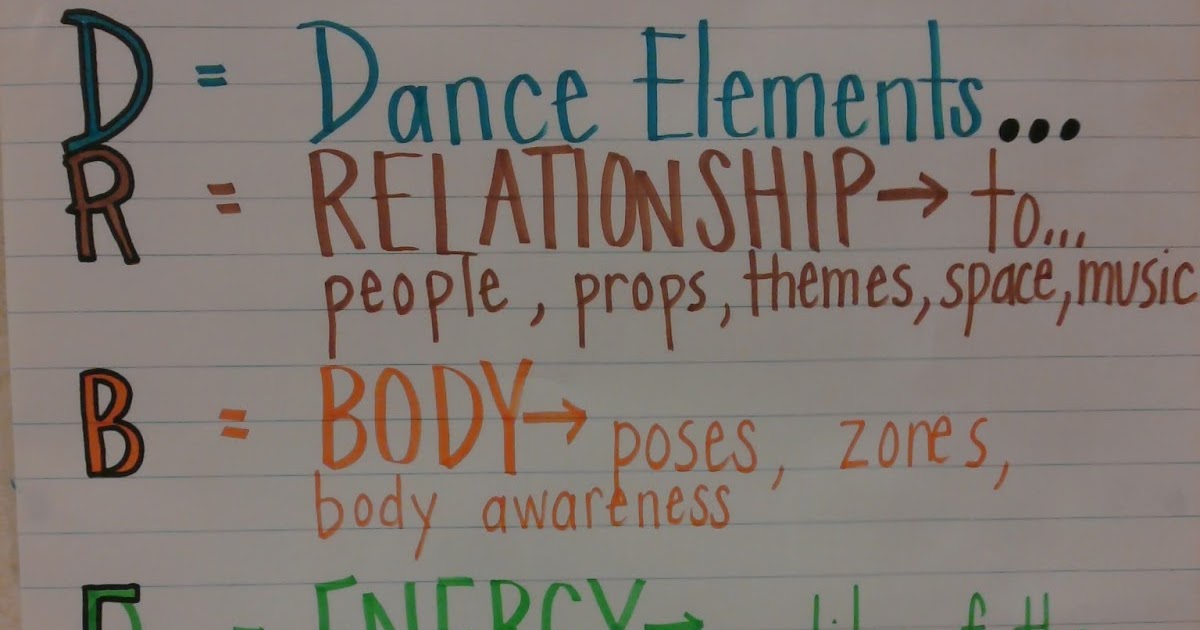 D = Dance Elements...
R = RELATIONSHIP → to...
people, props, themes, space, music
B = BODY → poses, zones,
body awareness
E = ENERGY →